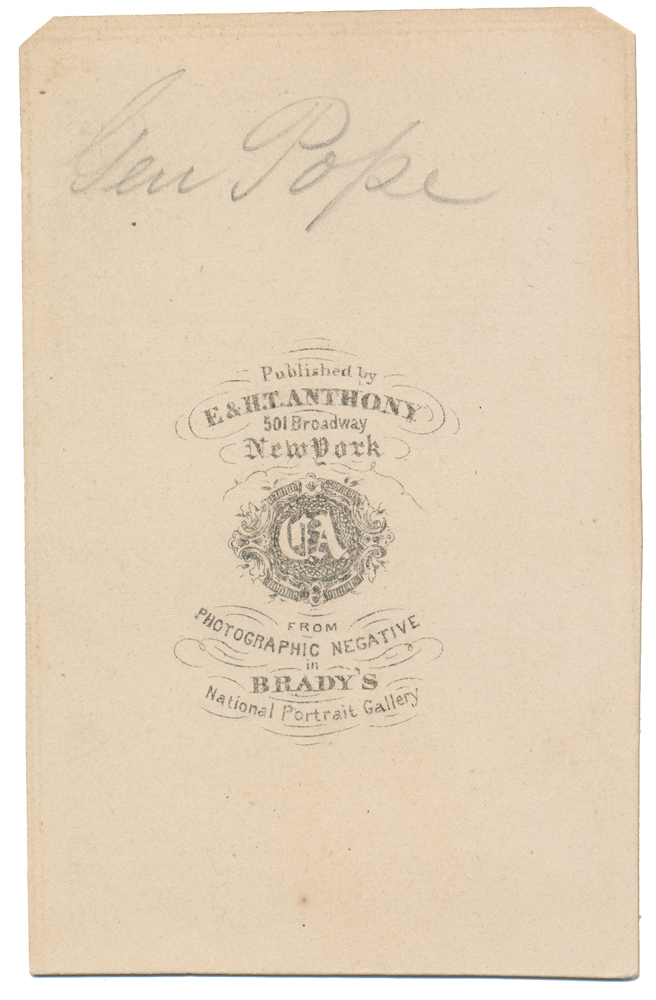 Gen Pope
Published by
E & H.T. ANTHONY
501 Broadway
New York
CA
FROM
PHOTOGRAPHIC NEGATIVE
in
BRADY'S
National Portrait Gallery